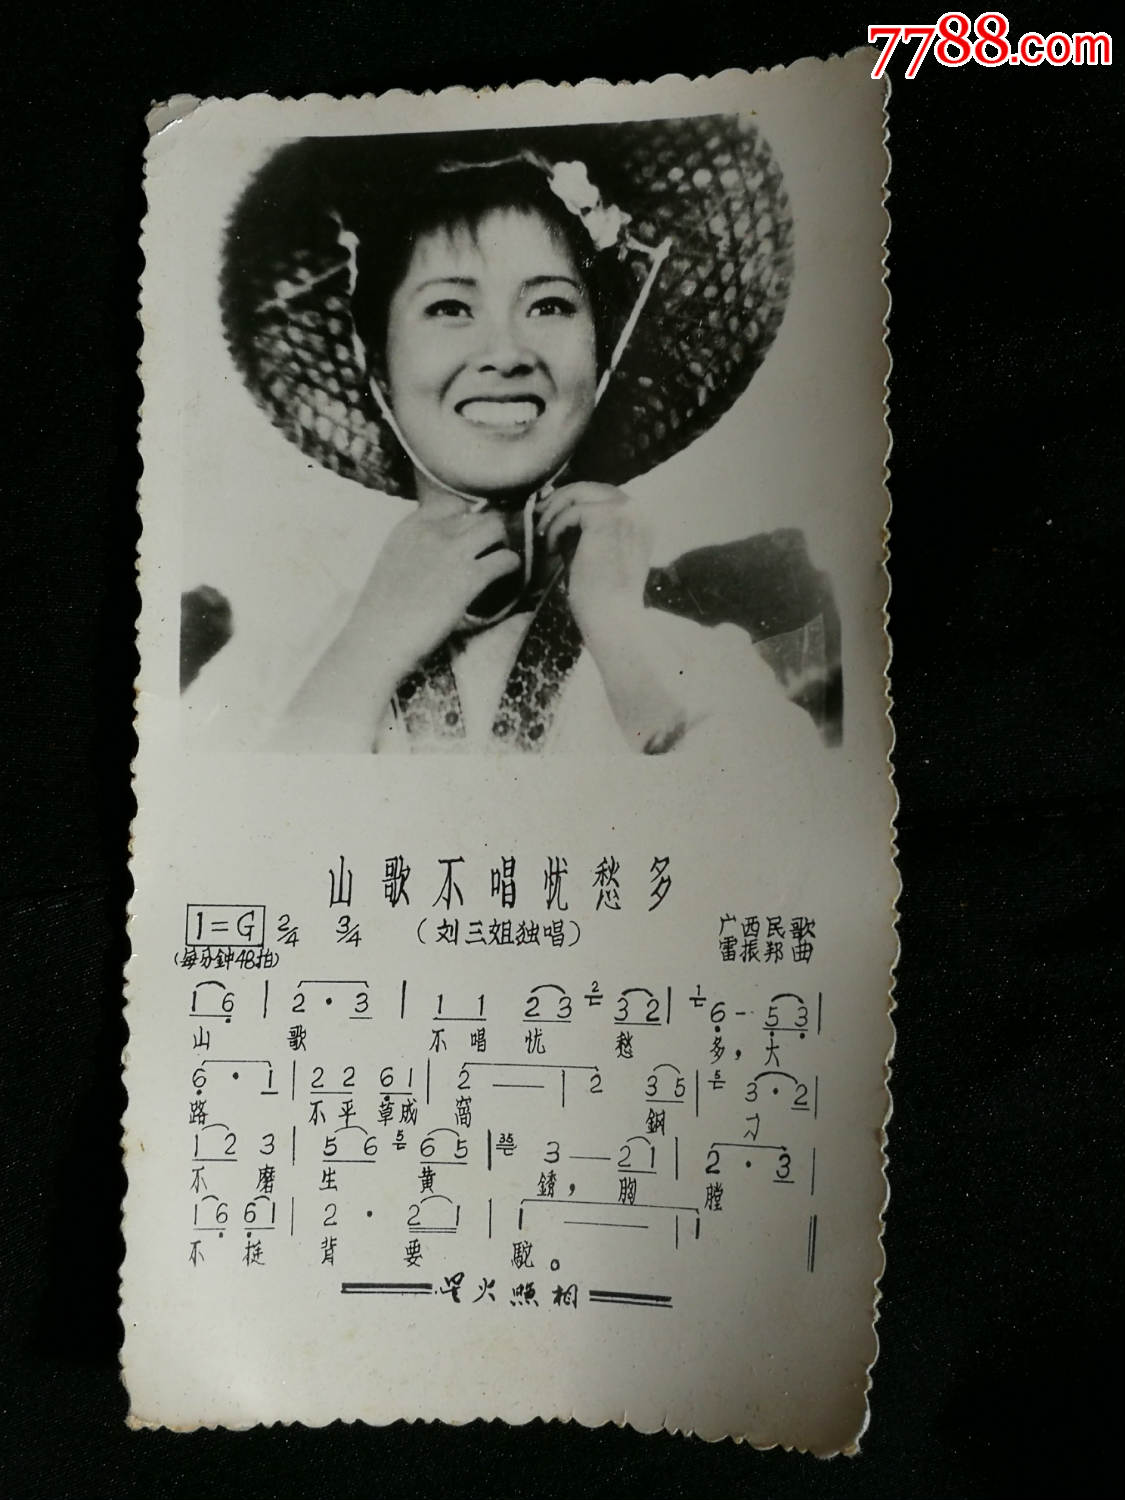 7788.com
山歌不唱忧愁多
1=G 2/4 3/4 (刘三姐独唱) 广西民歌
(每分鐘48拍) 雷振邦曲
1 6 | 2 · 3 | 1 1 2 3 2 3 2 | 1 6 - 5 3 |
山 歌 不 唱 忧 愁 多, 大
6 · 1 | 2 2 6 1 | 2 — | 2 3 5 | 5 3 · 2 |
路 不 平 草 成 窩 鋼 刀
1 2 3 | 5 6 5 6 5 | 35 3 — 2 1 | 2 · 3 |
不 磨 生 黄 鏽, 胸 膛
1 6 6 1 | 2 · 2 1 | 1 — | 1 ‖
不 挺 背 要 駝。
星火照相